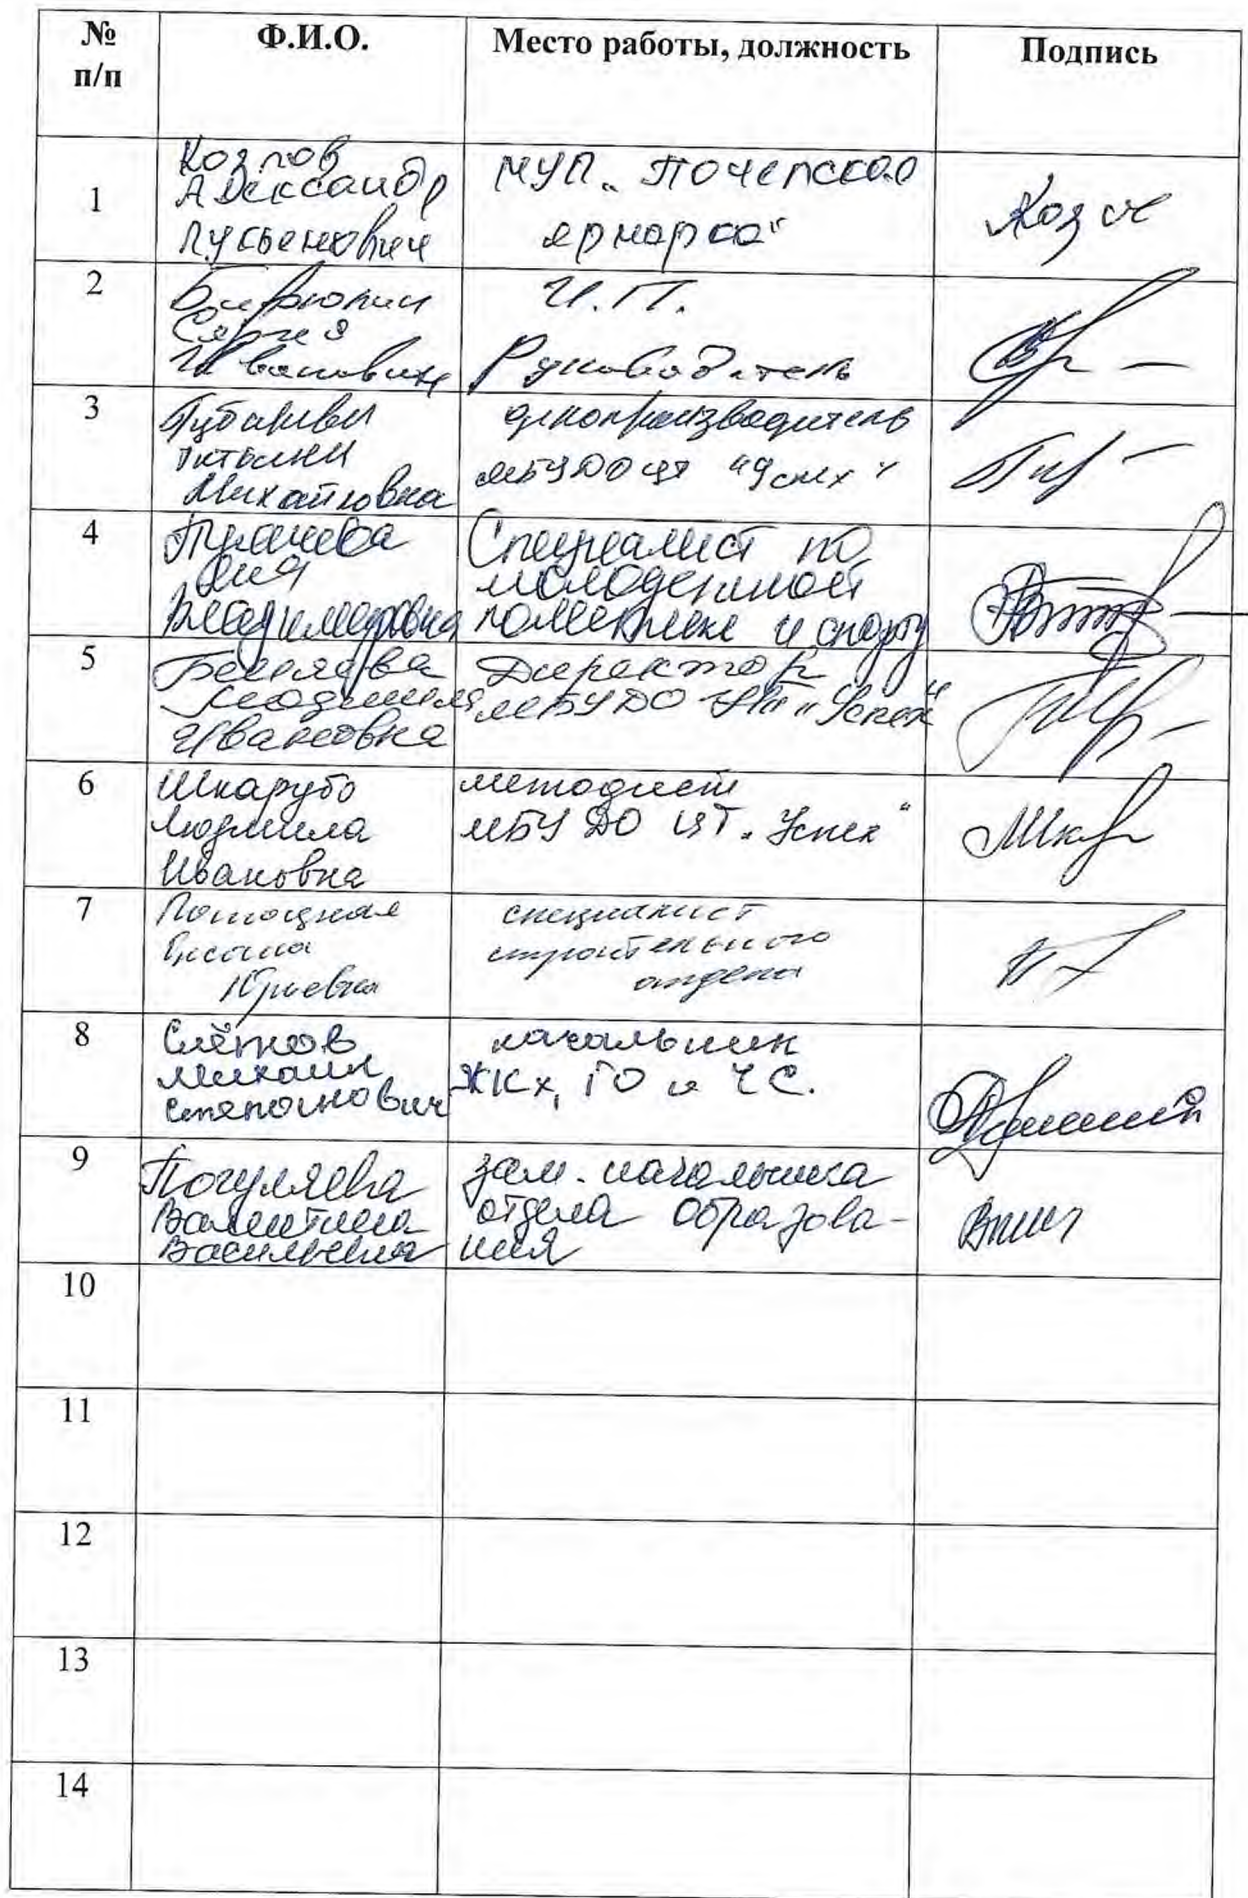 № п/п Ф.И.О. Место работы, должность Подпись
1
Козлов
Александр
МУП „Почепская
ярмарка“
2
Сергей
Иванович
И.П.
Руководитель
3
Михайловна
делопроизводитель
МБУДО ЦТ "Успех"
4
Владимировна
Специалист по
молодежной
политике и спорту
5
Беляева
Людмила
Ивановна
Директор
МБУДО ЦТ „Успех“
6
Шкарубо
Людмила
Ивановна
методист
МБУ ДО ЦТ „Успех“
7
Потоцкая
Юрьевна
специалист
строительного
отдела
8
Михаил
Степанович
начальник
ЖКХ, ГО и ЧС.
9
Погуляева
Валентина
Васильевна
зам. начальника
отдела образова-
ния
10
11
12
13
14